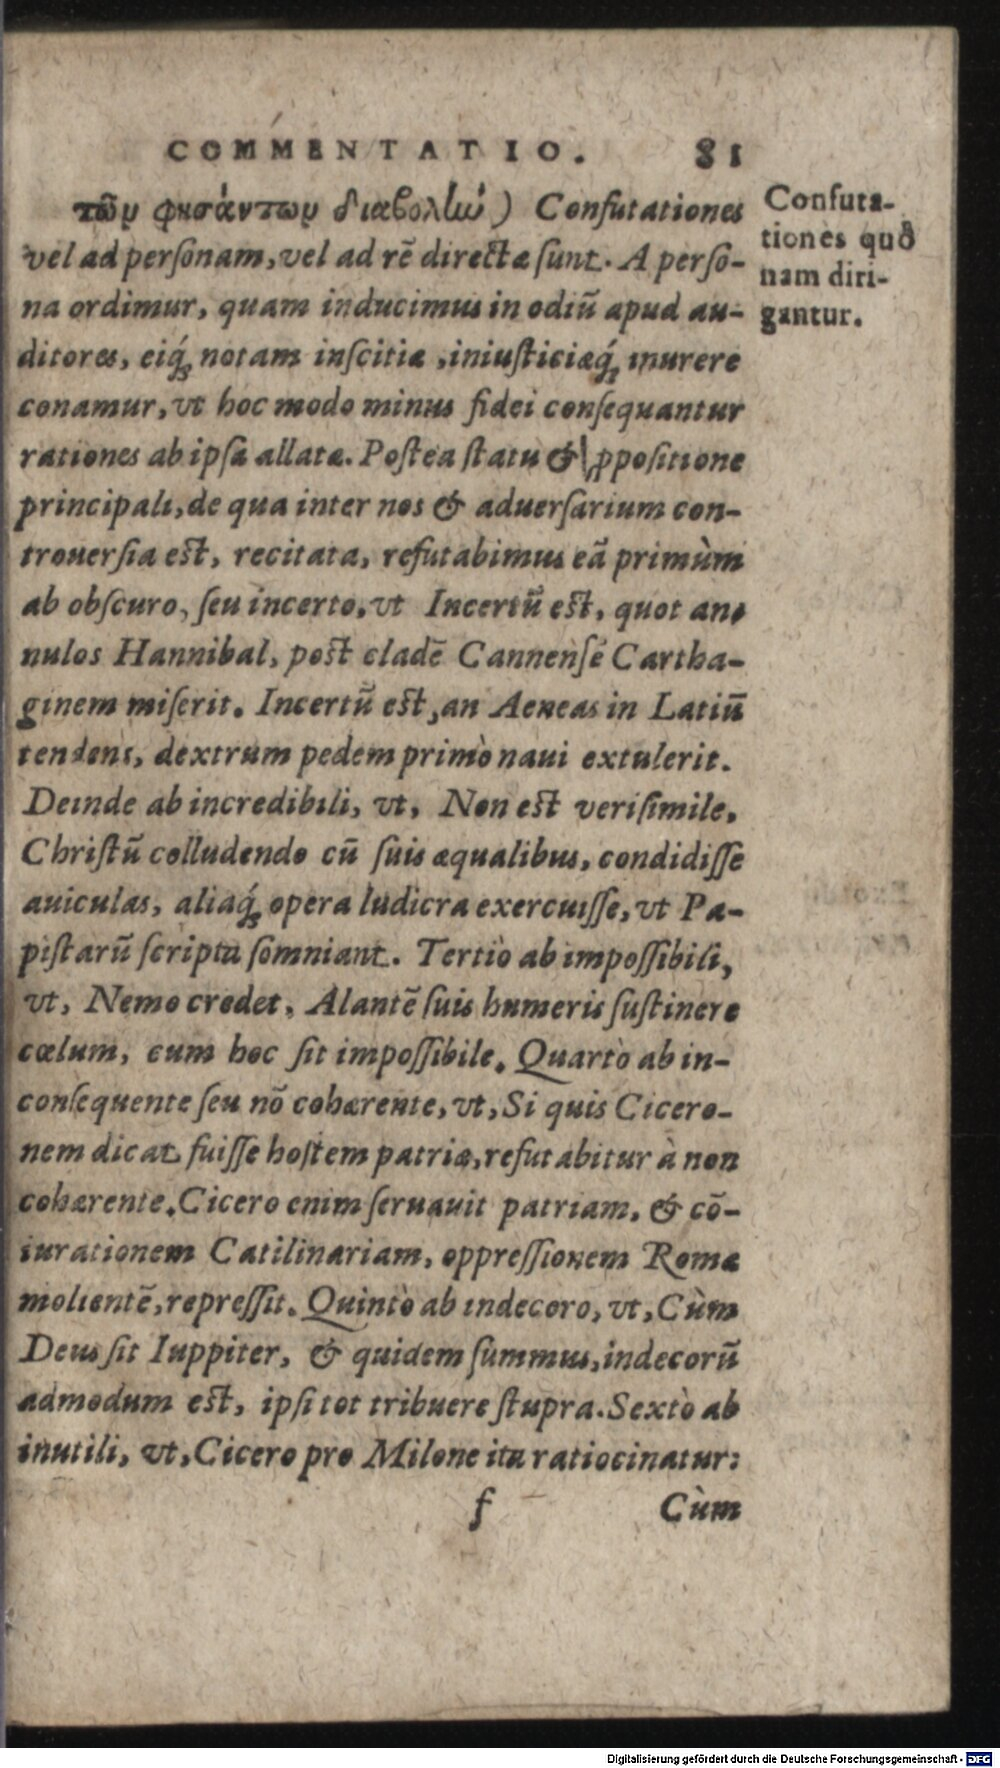 COMMENTATIO. 81
τῶν φησάντων διαβολὼ) Confutationes
vel ad perſonam, vel ad rē directæ ſunt. A perſo-
na ordimur, quam inducimus in odiū apud au-
ditores, eiq́; notam inſcitiæ, iniuſticiæq́; inurere
conamur, vt hoc modo minus fidei conſequantur
rationes ab ipſa allatæ. Poſtea ſtatu & ꝓpoſitione
principali, de qua inter nos & aduerſarium con-
trouerſia eſt, recitata, refutabimus eā primùm
ab obſcuro, ſeu incerto, vt Incertū eſt, quot an-
nulos Hannibal, poſt cladē Cannenſē Cartha-
ginem miſerit. Incertū eſt, an Aeneas in Latiū
tendens, dextrum pedem primò naui extulerit.
Deinde ab incredibili, vt, Non eſt veriſimile,
Chriſtū colludendo cū ſuis æqualibus, condidiſſe
auiculas, aliaq́; opera ludicra exercuiſſe, vt Pa-
piſtarū ſcripta ſomniant. Tertiò ab impoſſibili,
vt, Nemo credet, Alantē ſuis humeris ſuſtinere
cœlum, cum hoc ſit impoſſibile. Quartò ab in-
conſequente ſeu nō cohærente, vt, Si quis Cicero-
nem dicat fuiſſe hoſtem patriæ, refutabitur à non
cohærente. Cicero enim ſeruauit patriam, & cō-
iurationem Catilinariam, oppreſſionem Romæ
molientē, repreſſit. Quintò ab indecoro, vt, Cùm
Deus ſit Iuppiter, & quidem ſummus, indecorū
admodum eſt, ipſi tot tribuere ſtupra. Sextò ab
inutili, vt, Cicero pro Milone ita ratiocinatur:
f Cùm
Confuta-
tiones quò
nam diri-
gantur.
Digitalisierung gefördert durch die Deutsche Forschungsgemeinschaft - DFG